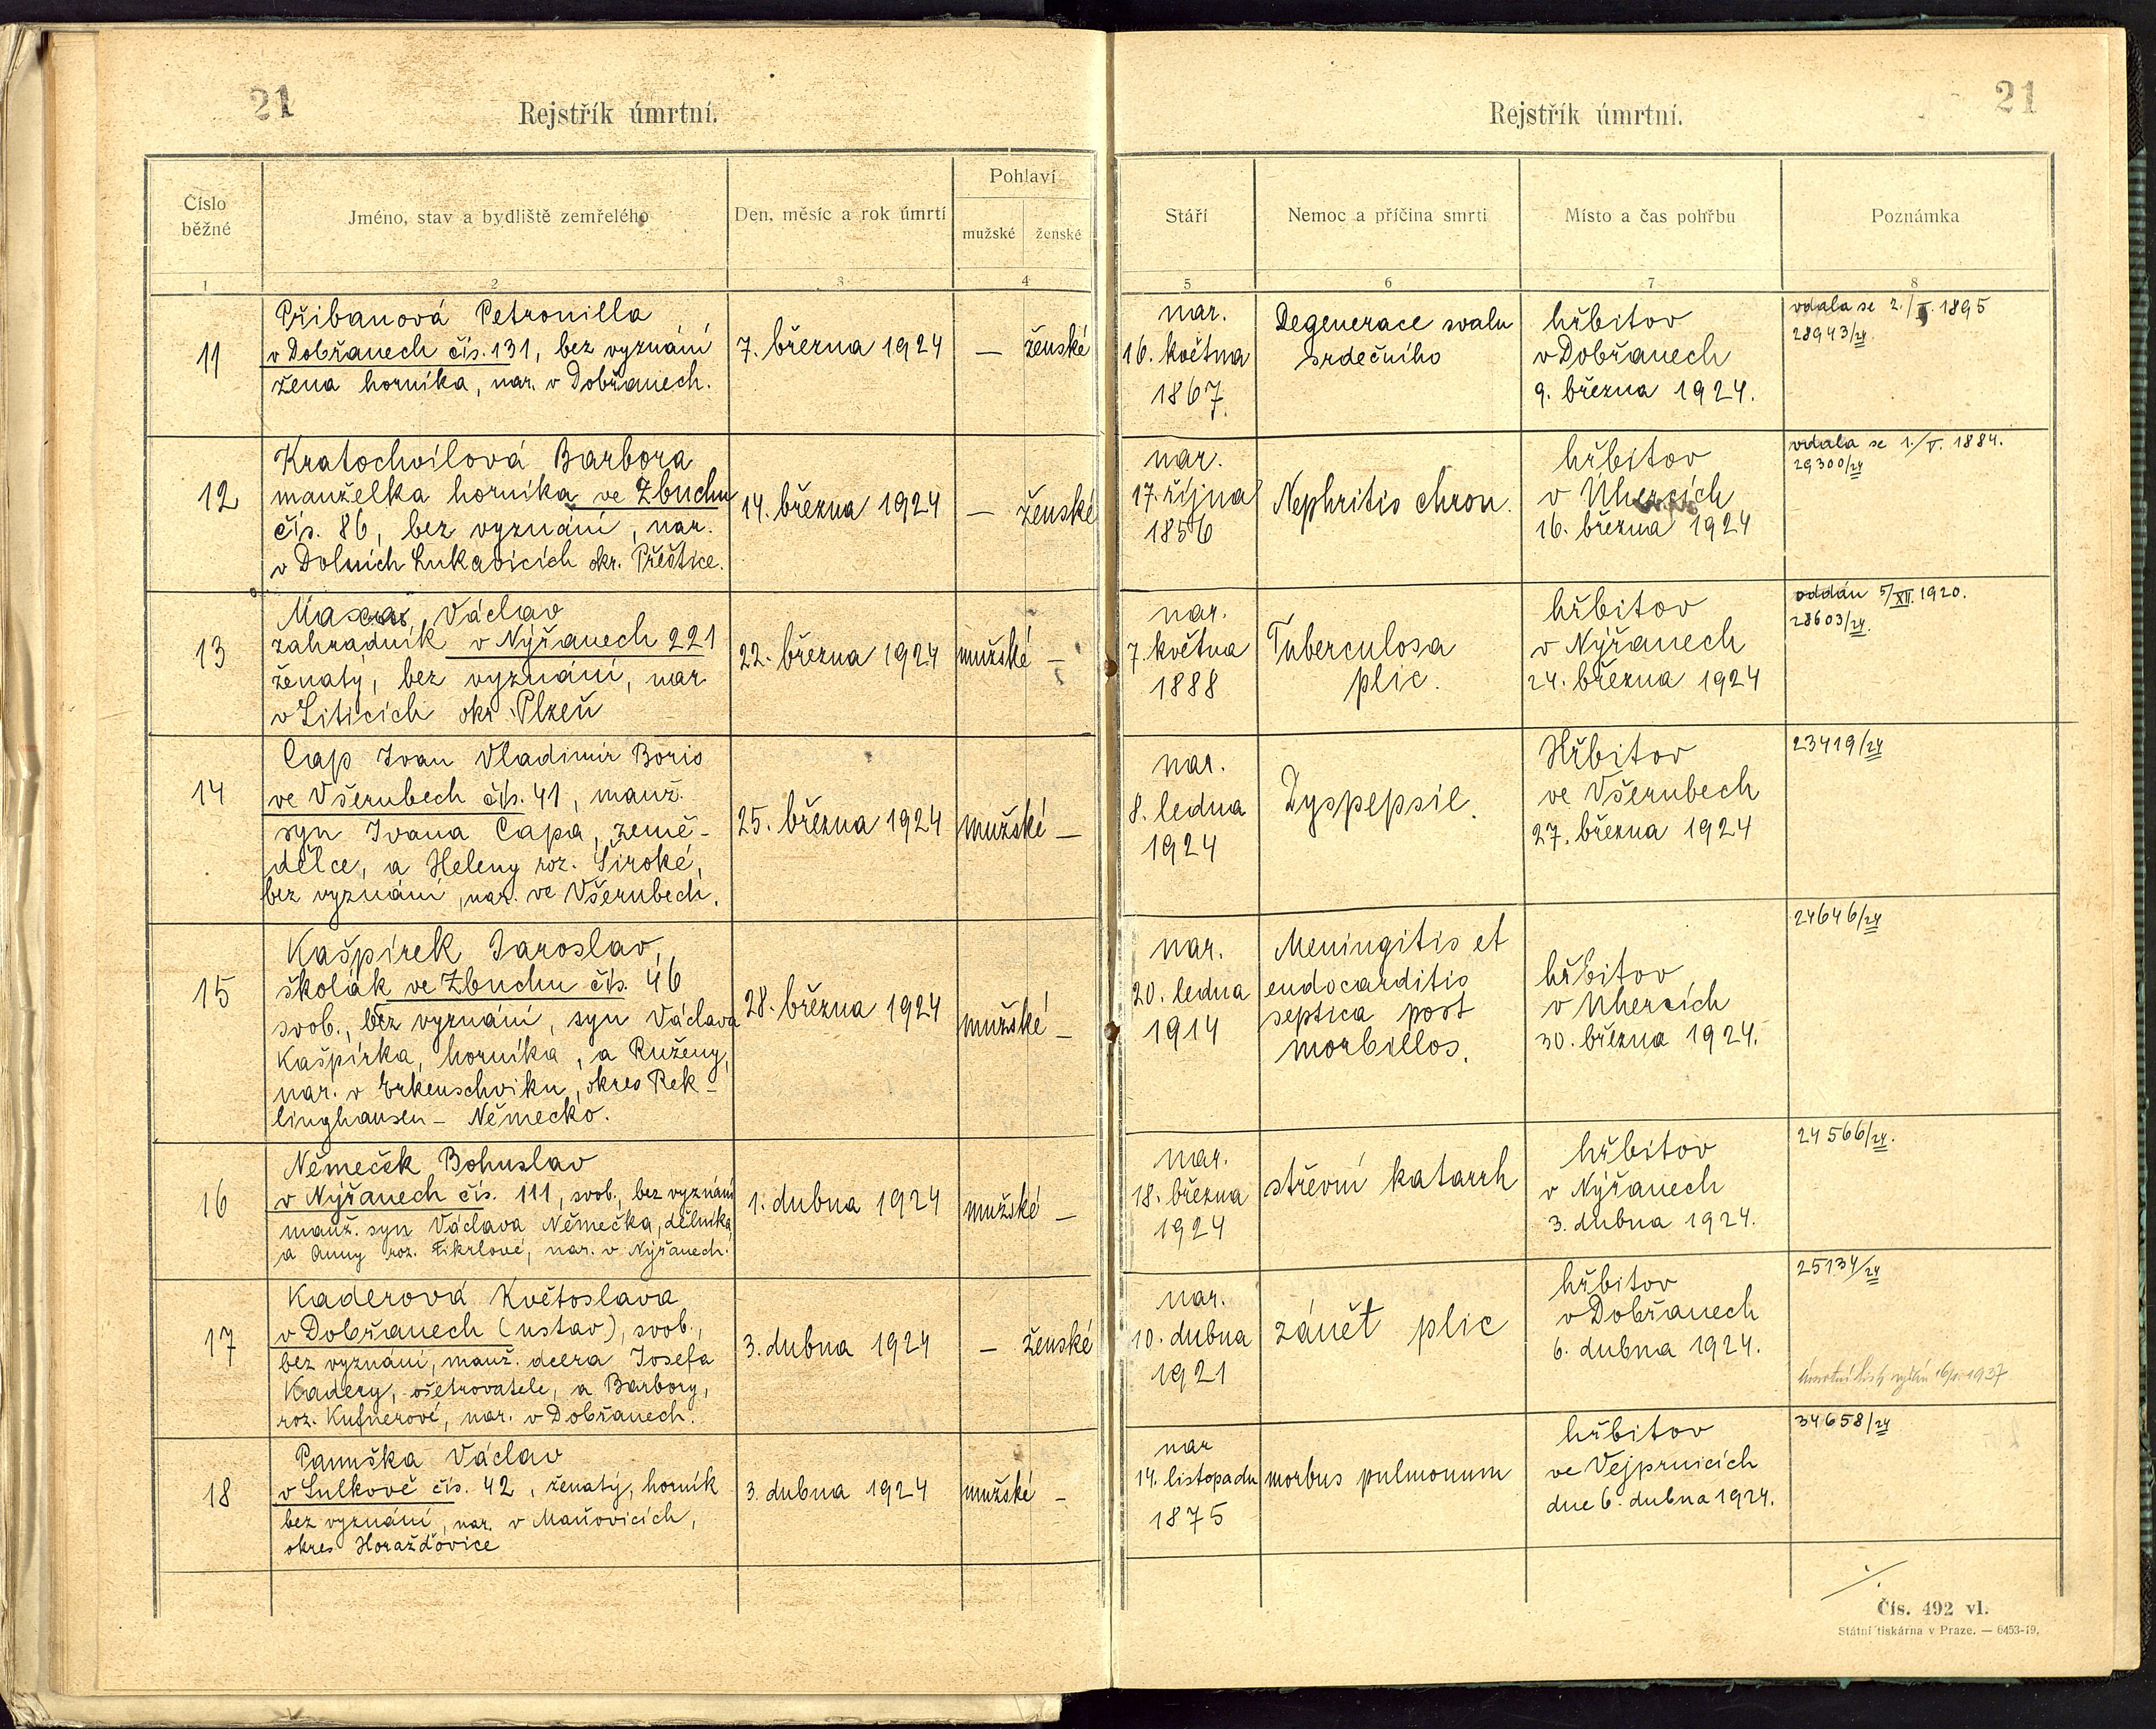 21
Rejstřík úmrtní.
Číslo běžné
Jméno, stav a bydliště zemřelého
Den, měsíc a rok úmrtí
Pohlaví
mužské
ženské
1
2
3
4
11
Přibanová Petronilla
v Dobřanech čís. 131, bez vyznání
žena horníka, nar. v Dobřanech.
7. března 1924
— ženské
12
Kratochvílová Barbora
manželka horníka ve Zbuchu
čís. 86, bez vyznání, nar.
v Dolních Lukavicích okr. Přeštice.
14. března 1924
— ženské
13
Václav
zahradník v Nýřanech 221
ženatý, bez vyznání, nar.
v Liticích okr. Plzeň
22. března 1924
mužské —
14
Cap Ivan Vladimir Boris
ve Všerubech čís. 41, manž.
syn Ivana Capa, země-
dělce, a Heleny roz. Široké,
bez vyznání, nar. ve Všerubech.
25. března 1924
mužské —
15
Kašpírek Jaroslav,
školák ve Zbuchu čís. 46
svob., bez vyznání, syn Václava
Kašpírka, horníka, a Ruženy,
nar. v Erkenschviku, okres Rek-
linghausen - Německo.
28. března 1924
mužské —
16
Němeček Bohuslav
v Nýřanech čís. 111, svob., bez vyznání
manž. syn Václava Němečka, dělníka,
a Anny roz. Fikrlové, nar. v Nýřanech.
1. dubna 1924
mužské —
17
Kaderová Květoslava
v Dobřanech (ustav), svob.,
bez vyznání, manž. dcera Josefa
Kadery, ošetrovatele, a Barbory,
roz. Kufnerové, nar. v Dobřanech.
3. dubna 1924
— ženské
18
Panuška Václav
v Sulkově čís. 42, ženatý, horník
bez vyznání, nar. v Maňovicích,
okres Horažďovice
3. dubna 1924
mužské —
Rejstřík úmrtní.
21
Stáří
Nemoc a příčina smrti
Místo a čas pohřbu
Poznámka
5
6
7
8
nar.
16. května
1867.
Degenerace svalu
srdečního
hřbitov
v Dobřanech
9. března 1924.
vdala se 2./ 1895
28943/24.
nar.
17. října
1856
Nephritis chron.
hřbitov
v Uhercích
16. března 1924
vdala se 1./V. 1884.
29300/24
nar.
7. května
1888
Tuberculosa
plic.
hřbitov
v Nýřanech
24. března 1924
oddán 5/XII. 1920.
28603/24.
nar.
8. ledna
1924
Dyspepsie.
Hřbitov
ve Všerubech
27. března 1924
23419/24
nar.
20. ledna
1914
Meningitis et
endocarditis
septica post
morbillos.
hřbitov
v Uhercích
30. března 1924.
24646/24
nar.
18. března
1924
střevní katarrh
hřbitov
v Nýřanech
3. dubna 1924.
24566/24.
nar.
10. dubna
1921
zánět plic
hřbitov
v Dobřanech
6. dubna 1924.
25134/24
úmrtní list vydán 1937
nar
14. listopadu
1875
morbus pulmonum
hřbitov
ve Vejprnicích
dne 6. dubna 1924.
34658/24
./.
Čís. 492 vl.
Státní tiskárna v Praze. — 6453-19.